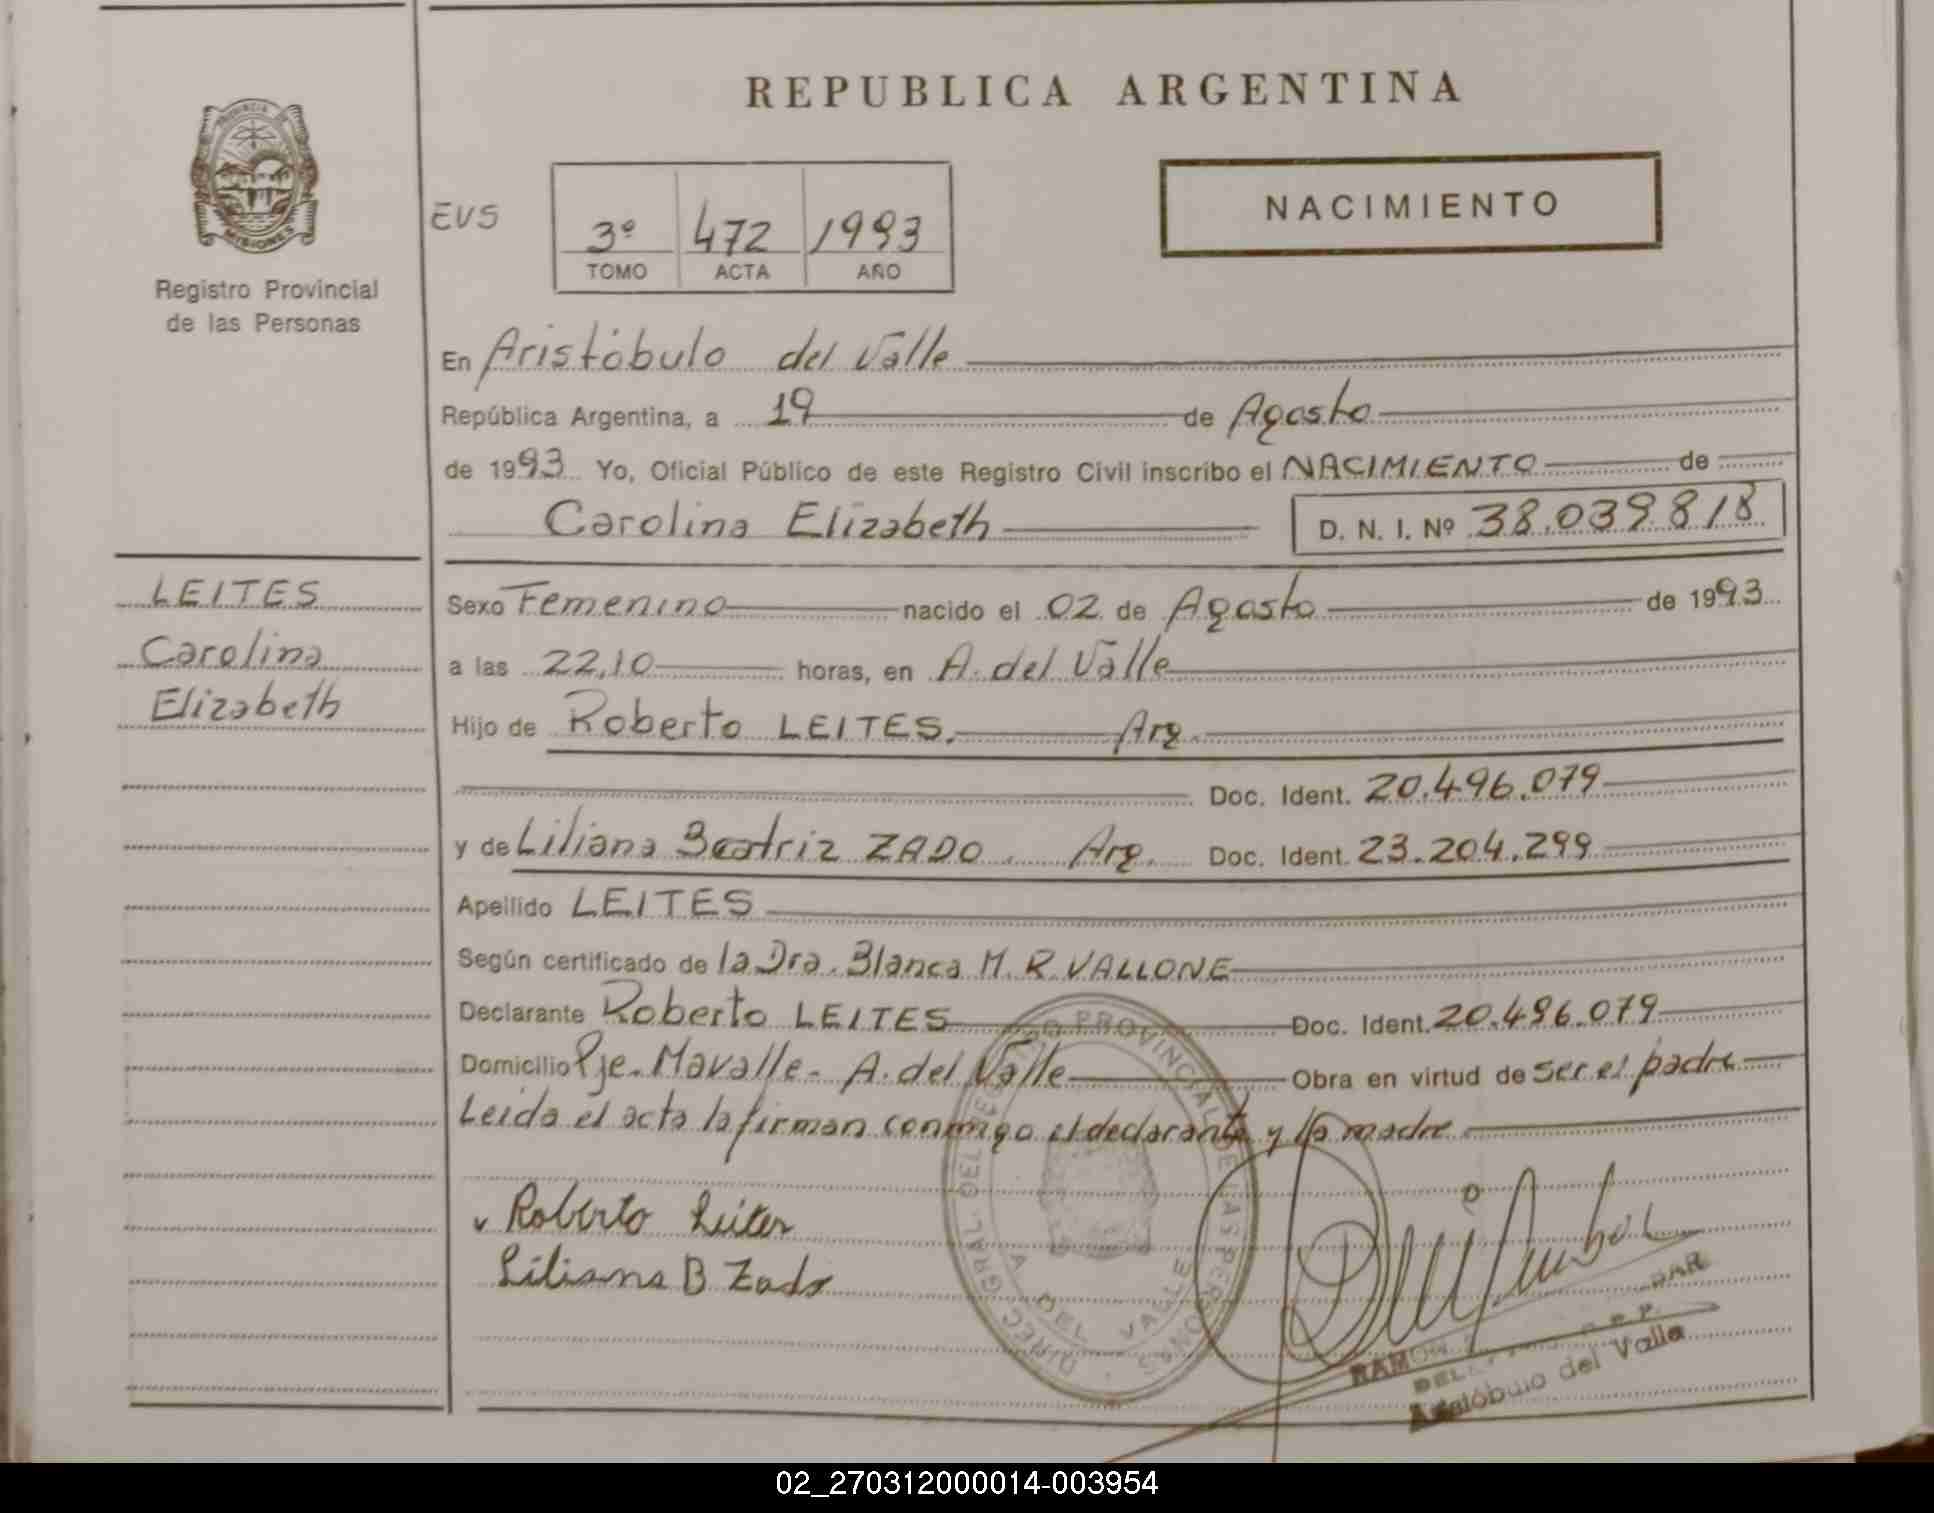 REPUBLICA ARGENTINA
PROVINCIA DE MISIONES
Registro Provincial
de las Personas
EVS
3º 472 1993
TOMO ACTA AÑO
NACIMIENTO
En Aristóbulo del Valle
República Argentina, a 19 de Agosto
de 1993 Yo, Oficial Público de este Registro Civil inscribo el NACIMIENTO de
Carolina Elizabeth D. N. I. Nº 38.039.818
LEITES
Carolina
Elizabeth
Sexo Femenino nacido el 02 de Agosto de 1993
a las 22,10 horas, en A. del Valle
Hijo de Roberto LEITES. Arg.
Doc. Ident. 20.496.079
y de Liliana Beatriz ZADO. Arg. Doc. Ident. 23.204.299
Apellido LEITES
Según certificado de la Dra. Blanca M. R. VALLONE
Declarante Roberto LEITES Doc. Ident. 20.496.079
Domicilio Pje. Mavalle - A. del Valle Obra en virtud de ser el padre
Leida el acta la firman conmigo el declarante y la madre
Roberto Leites
Liliana B Zado
DIREC. GRAL. DEL REGISTRO PROVINCIAL DE LAS PERSONAS
A. DEL VALLE
RAMON
Aristóbulo del Valle
02_270312000014-003954